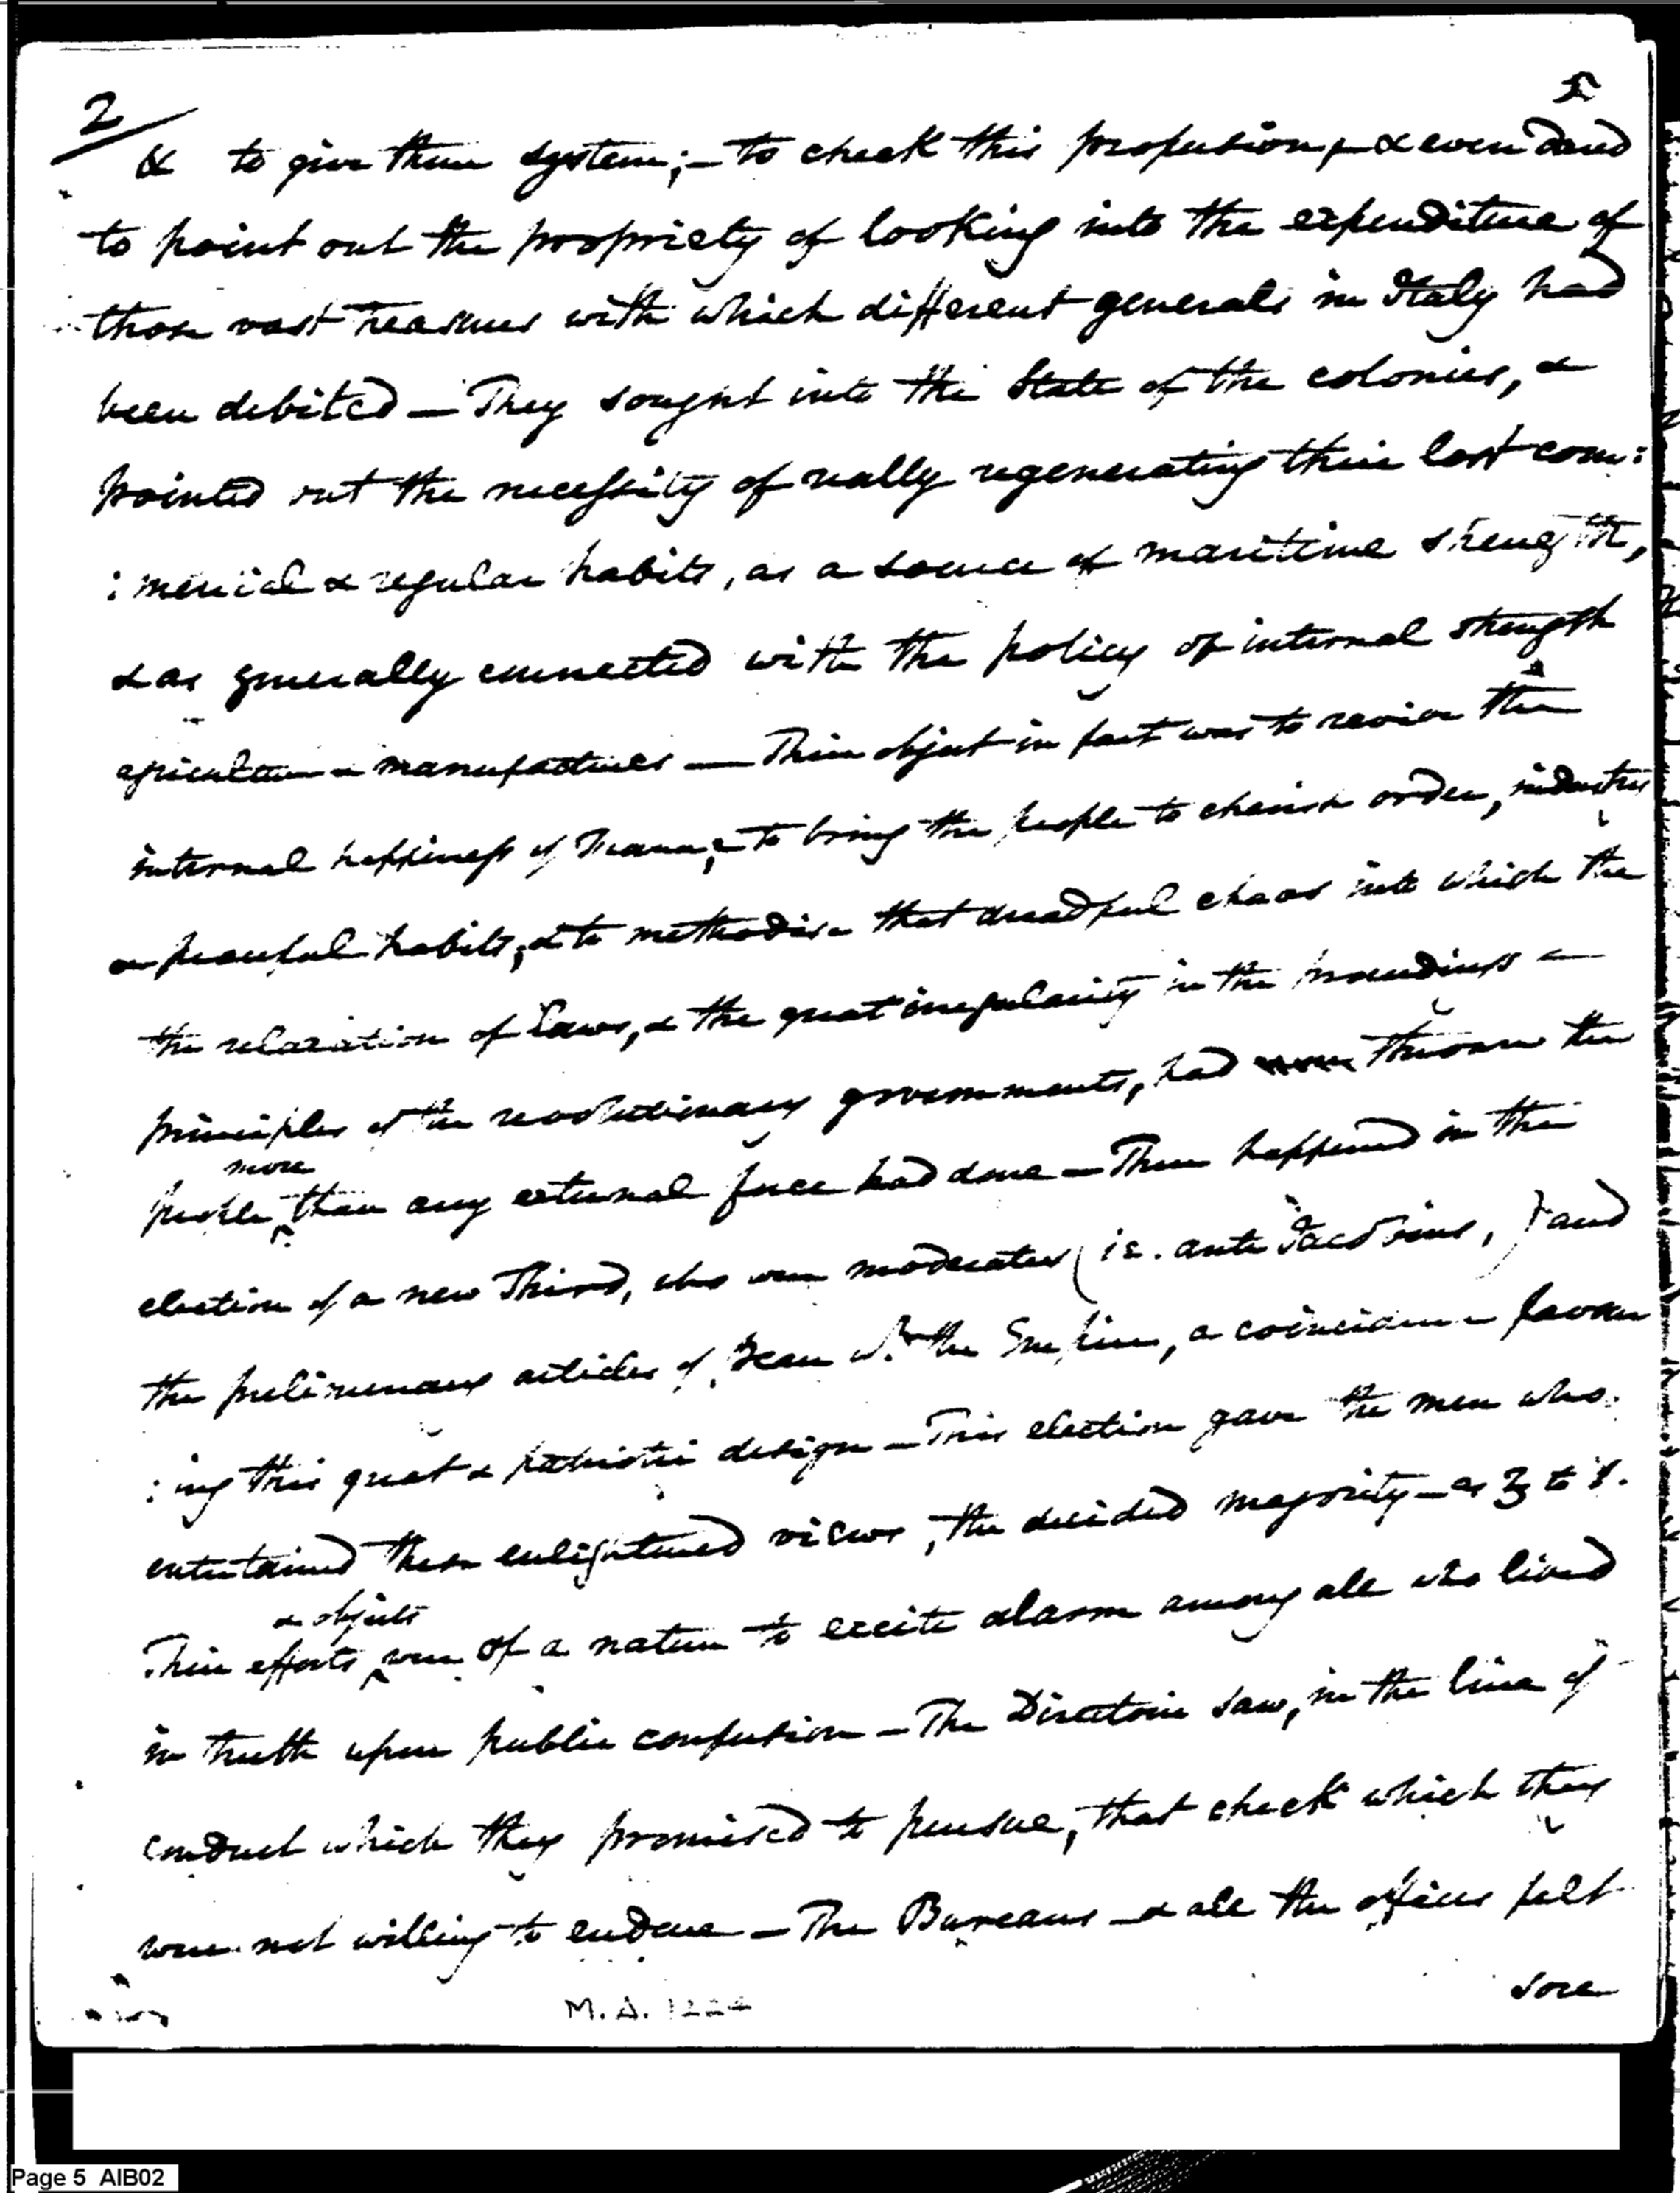 2
5
& to give them system; – to check this profusion, – & even dared
to point out the propriety of looking into the expenditure of
those vast treasures with which different generals in Italy had
been debited – They sought into the State of the colonies, &
pointed out the necessity of really regenerating their lost com:
:mercial & regular habits, as a source of maritime strength,
& as generally connected with the policy of internal strength
agriculture & manufactures – Their object in fact was to revive the
internal happiness of France; – to bring the people to cherish order, industry
& peaceful habits; & to methodise that dreadful chaos into which the
the relaxation of Laws, & the great irregularity in the proceedings &
principles of the revolutionary governments, had thrown the
more
people than any external force had done – There happened in the
election of a new Third, who were moderates (ie. anti Jacobins,) and
the preliminary articles of Peace wt. the Empire, a coincidence favour
:ing this great & patriotic design – This election gave the men who
entertained these enlightened views, the decided majority – as 3 to 1.
& objects
Their efforts were of a nature to excite alarm among all who lived
in truth upon public confusion – The Directoire saw, in the line of
conduct which they promised to pursue, that check which they
were not willing to endure – The Bureaus – & all the offices felt
sore
M.A. 1224
Page 5 AIB02